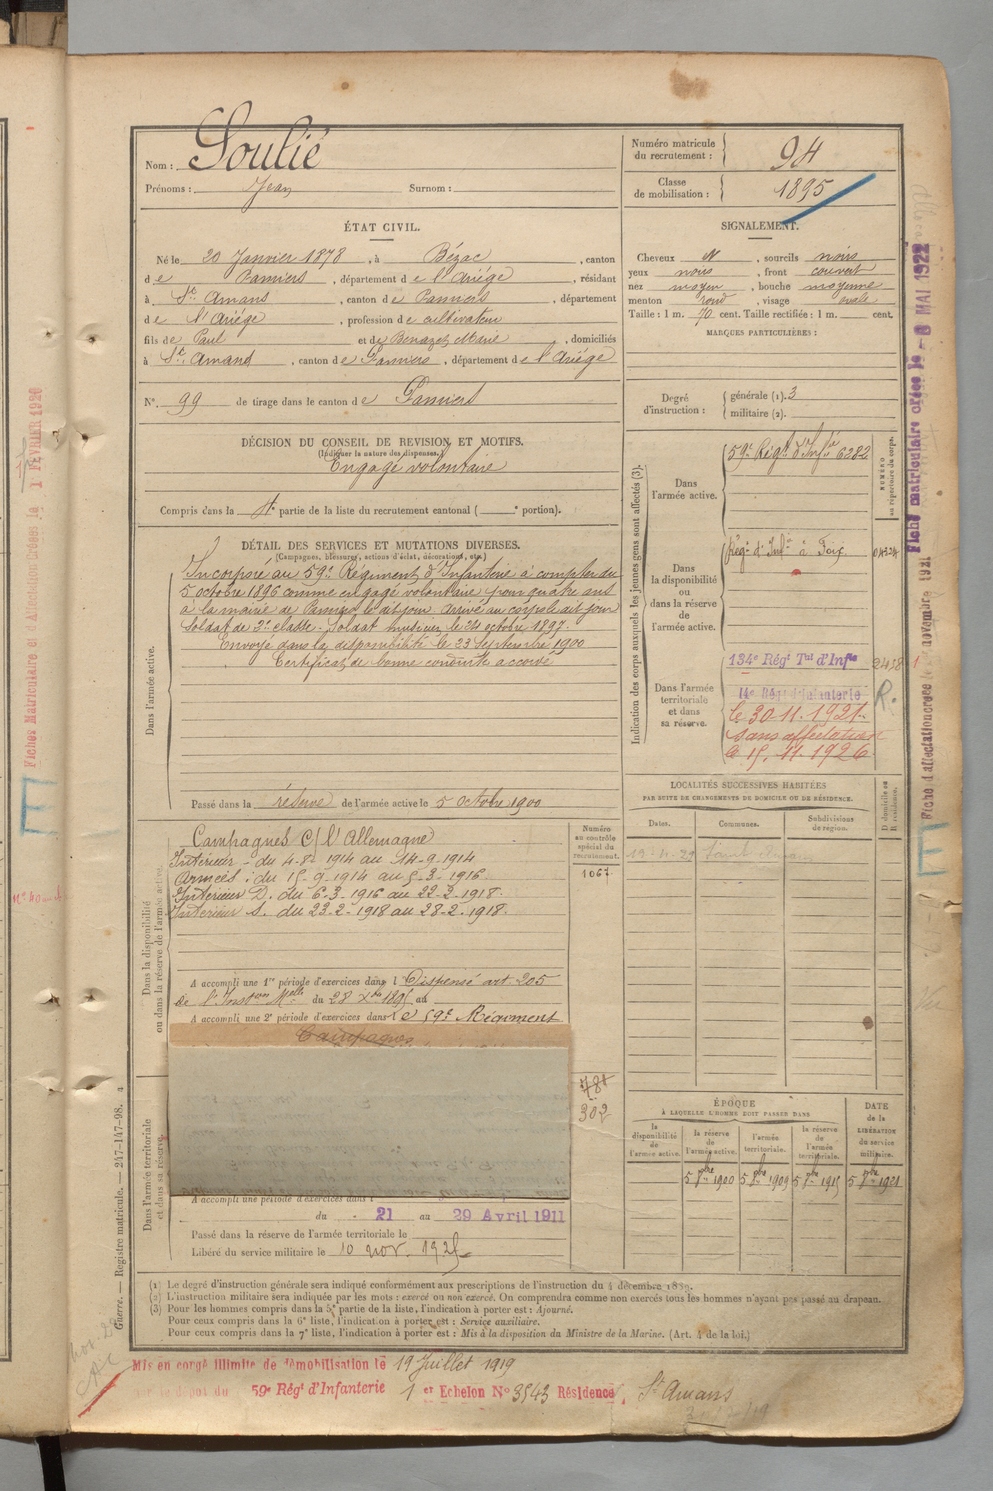 Nom : Soulié
Prénoms : Jean Surnom :
Numéro matricule du recrutement : 94
Classe de mobilisation : 1895
ÉTAT CIVIL.
Né le 20 Janvier 1878, à Bézac, canton
de Pamiers, département de l'Ariége, résidant
à St. Amans, canton de Pamiers, département
de l'Ariége, profession de cultivateur
fils de Paul et de Benazet Marie, domiciliés
à St. Amand, canton de Pamiers, département de l'Ariége
N°. 99 de tirage dans le canton de Pamiers
SIGNALEMENT.
Cheveux N, sourcils noirs
yeux noirs, front couvert
nez moyen, bouche moyenne
menton rond, visage ovale
Taille : 1 m. 70 cent. Taille rectifiée : 1 m. cent.
MARQUES PARTICULIÈRES :
Degré d'instruction : générale (1). 3
militaire (2).
DÉCISION DU CONSEIL DE REVISION ET MOTIFS.
(Indiquer la nature des dispenses.)
Engagé volontaire
Compris dans la 4e partie de la liste du recrutement cantonal ( e portion).
DÉTAIL DES SERVICES ET MUTATIONS DIVERSES.
(Campagnes, blessures, actions d'éclat, décorations, etc.)
Dans l'armée active.
Incorporé au 59e Régiment d'Infanterie à compter du
5 octobre 1896 comme engagé volontaire pour quatre ans
à la mairie de Pamiers le dit jour. Arrivé au corps le dit jour
soldat de 2e classe. Soldat musicien le 21 octobre 1897.
Envoyé dans la disponibilité le 23 Septembre 1900
Certificat de bonne conduite accordé
Passé dans la réserve de l'armée active le 5 octobre 1900
Indication des corps auxquels les jeunes gens sont affectés (3).
NUMÉRO au répertoire du corps.
Dans l'armée active.
59e Régt. d'Infie 6282
Dans la disponibilité ou dans la réserve de l'armée active.
Régt d'Infie à Foix
Dans l'armée territoriale et dans sa réserve.
134e Régt Tal d'Infie 2458
R.
14e Régt d'Infanterie
le 30-11-1921.
sans affectation
le 15.11.1926
LOCALITÉS SUCCESSIVES HABITÉES
PAR SUITE DE CHANGEMENTS DE DOMICILE OU DE RÉSIDENCE.
Dates. Communes. Subdivisions de région. D domicile ou R résidence.
Dans la disponibilité ou dans la réserve de l'armée active.
Campagnes C/ l'Allemagne
Intérieur - du 4-8-1914 au 14-9-1914
Armées : du 15-9-1914 au 5-3-1916
Intérieur D. du 6-3-1916 au 22-2-1918.
Intérieur S. du 23-2-1918 au 28-2-1918.
Numéro au contrôle spécial du recrutement.
1067
A accompli une 1re période d'exercices dans Dispensé art. 205
de l'Instron Melle du 28 Xbre 1895 au
A accompli une 2e période d'exercices dans le 59e Régiment
Campagnes
781
302
Dans l'armée territoriale et dans sa réserve.
A accompli une période d'exercices dans
du 21 au 29 Avril 1911
Passé dans la réserve de l'armée territoriale le
Libéré du service militaire le 10 nov. 1925
ÉPOQUE
À LAQUELLE L'HOMME DOIT PASSER DANS
la disponibilité de l'armée active. la réserve de l'armée active. l'armée territoriale. la réserve de l'armée territoriale.
DATE de la LIBÉRATION du service militaire.
5 8bre 1900 5 8bre 1909 5 8bre 1915 5 8bre 1921
(1) Le degré d'instruction générale sera indiqué conformément aux prescriptions de l'instruction du 4 décembre 1889.
(2) L'instruction militaire sera indiquée par les mots : exercé ou non exercé. On comprendra comme non exercés tous les hommes n'ayant pas passé au drapeau.
(3) Pour les hommes compris dans la 5e partie de la liste, l'indication à porter est : Ajourné.
Pour ceux compris dans la 6e liste, l'indication à porter est : Service auxiliaire.
Pour ceux compris dans la 7e liste, l'indication à porter est : Mis à la disposition du Ministre de la Marine. (Art. 4 de la loi.)
Mis en congé illimité de démobilisation le 19 Juillet 1919
par le dépot du 59e Régt d'Infanterie 1er Echelon N° 3543 Résidence, St Amans
Guerre. — Registre matricule. — 247-147-98.
Fiches Matriculaire et d'Affectation créées le 1 FÉVRIER 1920
Fiche matriculaire créée le - 8 MAI 1922
Fiche d'affectation créée le novembre 1921